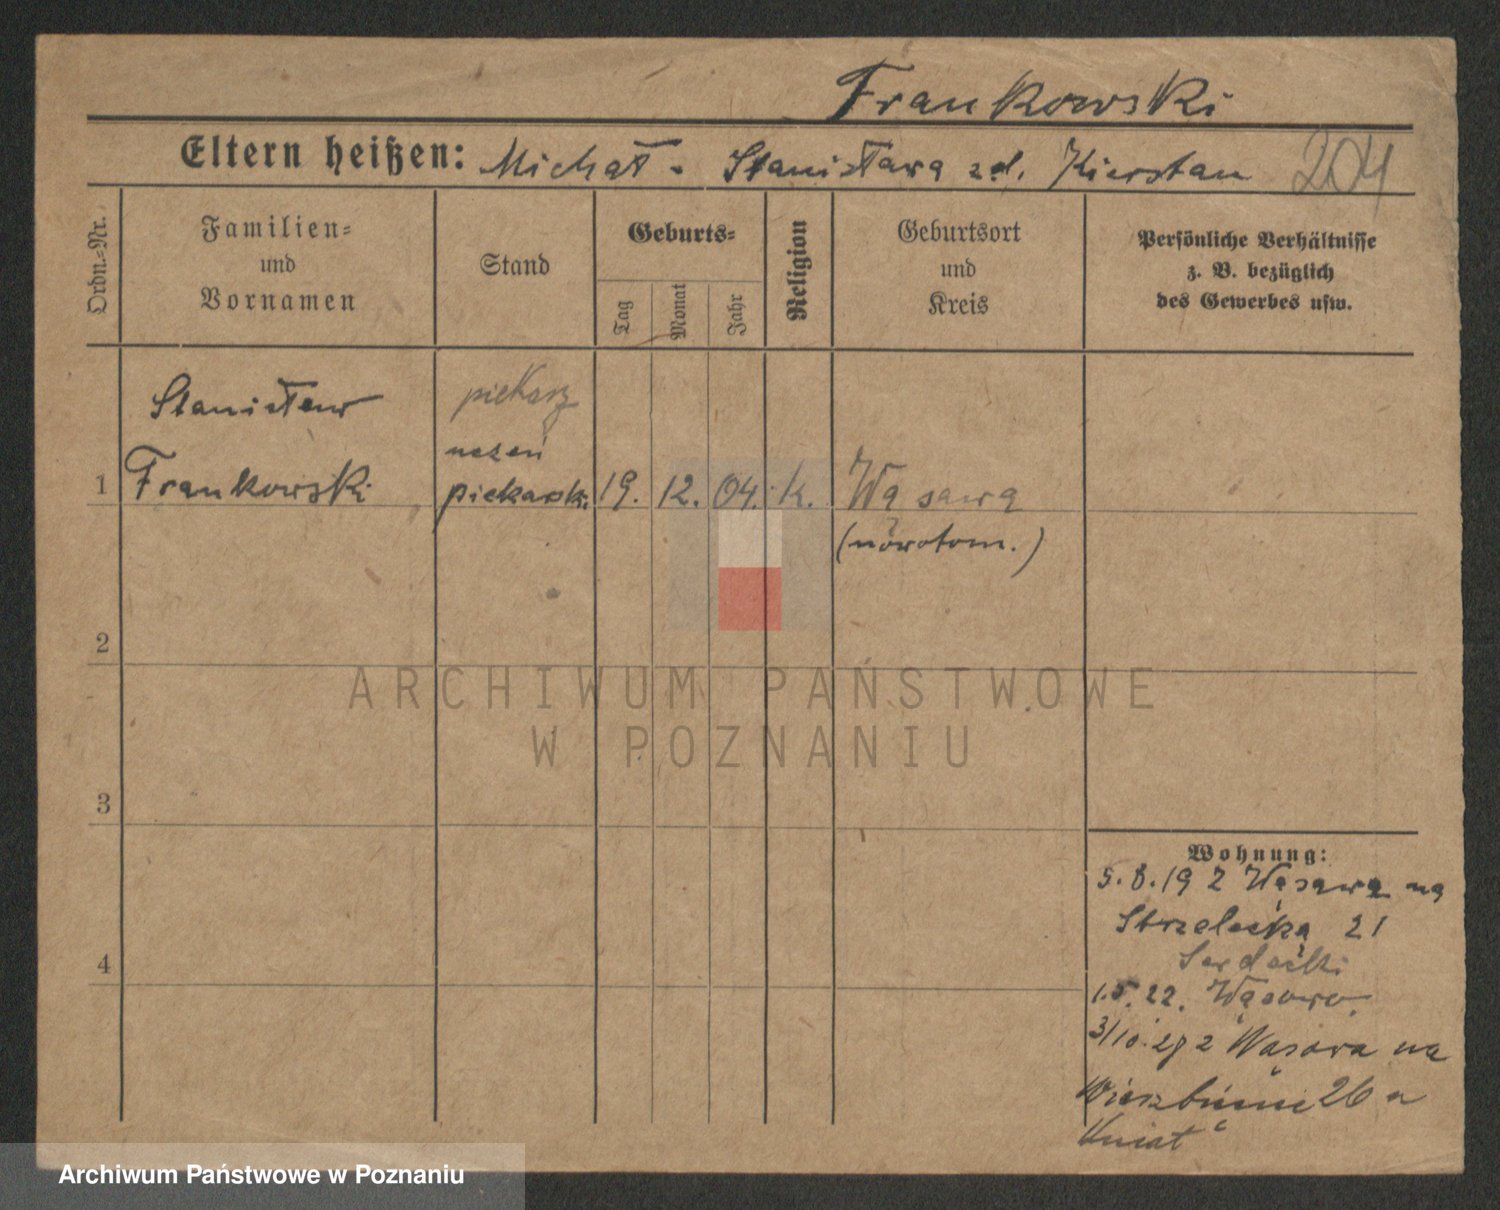 Frankowski
Eltern heißen: Michał - Stanisława zd. Kierstan 204
Ordn.-Nr.
Familien-
und
Vornamen
Stand
Geburts-
Tag
Monat
Jahr
Religion
Geburtsort
und
Kreis
Persönliche Verhältnisse
z. B. bezüglich
des Gewerbes usw.
Stanisław piekarz
uczeń
1 Frankowski piekarsk. 19. 12. 04. k. Wąsawa
(nowotom.)
2
3
4
Wohnung:
5.8.19 z Wąsawa na
Strzelecka 21
1.5.22. Wąsowo.
3/10.27 z Wąsowa na
26 u
ARCHIWUM PAŃSTWOWE
W POZNANIU
Archiwum Państwowe w Poznaniu